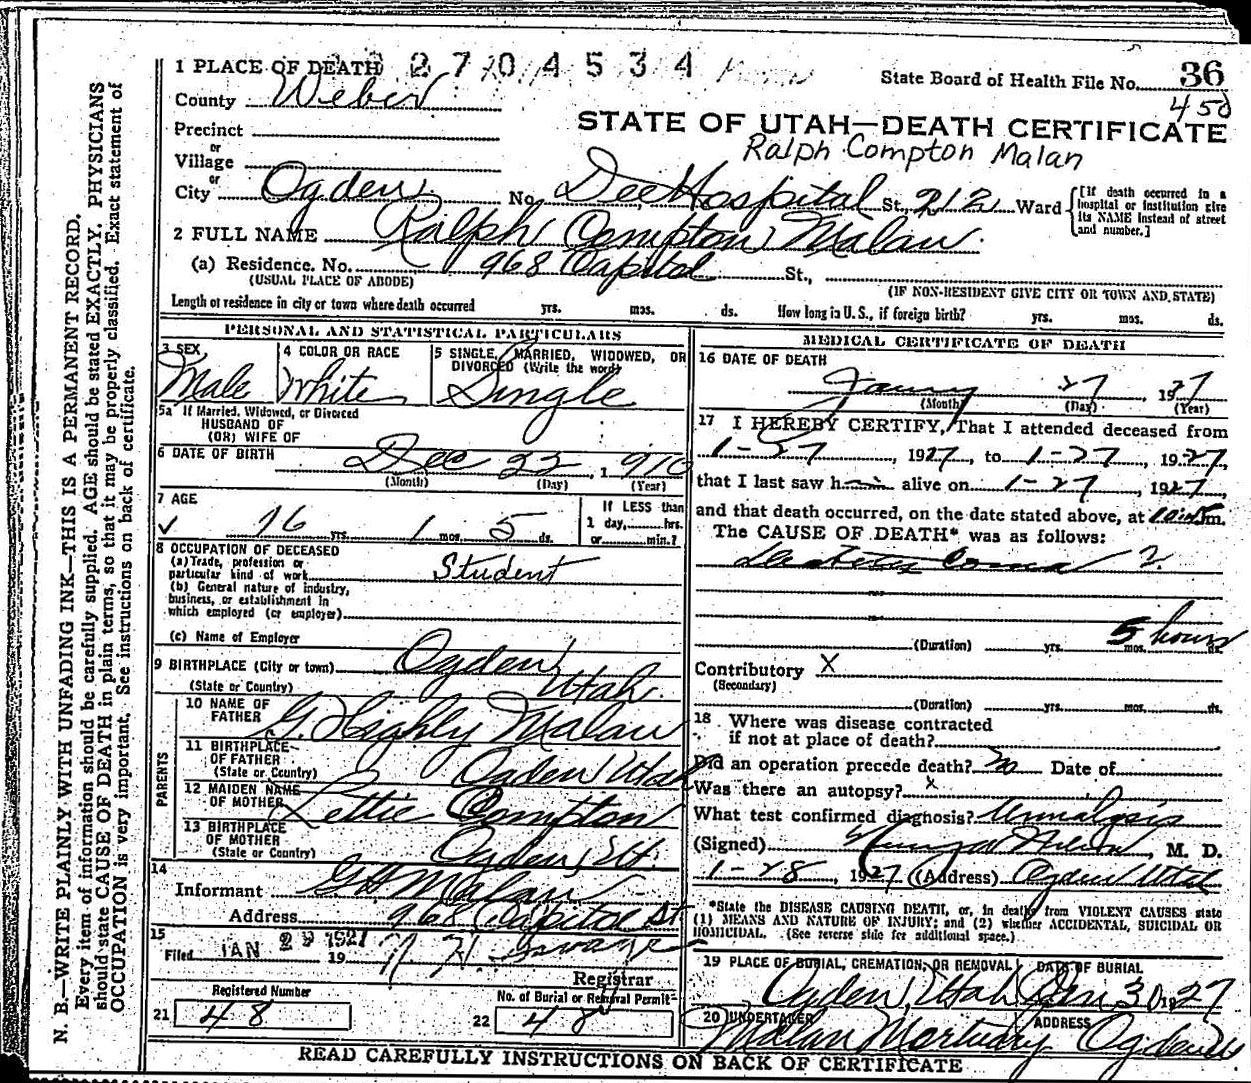 N. B.—WRITE PLAINLY WITH UNFADING INK—THIS IS A PERMANENT RECORD.
Every item of information should be carefully supplied. AGE should be stated EXACTLY. PHYSICIANS
should state CAUSE OF DEATH in plain terms, so that it may be properly classified. Exact statement of
OCCUPATION is very important. See instructions on back of certificate.
1 PLACE OF DEATH 2 7 0 4 5 3 4
State Board of Health File No. 36
450
County Weber
STATE OF UTAH—DEATH CERTIFICATE
Ralph Compton Malan
Precinct
or
Village
or
City Ogden No. Dee Hospital St. 212 Ward
[If death occurred in a
hospital or institution give
its NAME instead of street
and number.]
2 FULL NAME Ralph Compton Malan
(a) Residence. No. 968 Capitol St.,
(USUAL PLACE OF ABODE) (IF NON-RESIDENT GIVE CITY OR TOWN AND STATE)
Length of residence in city or town where death occurred yrs. mos. ds. How long in U. S., if foreign birth? yrs. mos. ds.
PERSONAL AND STATISTICAL PARTICULARS
3 SEX
Male
4 COLOR OR RACE
White
5 SINGLE, MARRIED, WIDOWED, OR
DIVORCED (Write the word)
Single
5a If Married, Widowed, or Divorced
HUSBAND OF
(OR) WIFE OF
6 DATE OF BIRTH Dec 22, 1910
(Month) (Day) (Year)
7 AGE
16 yrs. 1 mos. 5 ds.
If LESS than
1 day, hrs.
or min.?
8 OCCUPATION OF DECEASED
(a) Trade, profession or
particular kind of work Student
(b) General nature of industry,
business, or establishment in
which employed (or employer)
(c) Name of Employer
9 BIRTHPLACE (City or town) Ogden
(State or Country) Utah.
PARENTS
10 NAME OF
FATHER G. Highly Malan
11 BIRTHPLACE
OF FATHER
(State or Country) Ogden Utah
12 MAIDEN NAME
OF MOTHER Lettie Compton
13 BIRTHPLACE
OF MOTHER
(State or Country) Ogden, Ut.
14
Informant G H Malan
Address 968 Capitol St
15
Filed JAN 29 1927 19
Registrar
21 Registered Number
48
22 No. of Burial or Removal Permit
48
MEDICAL CERTIFICATE OF DEATH
16 DATE OF DEATH
January 27, 1927
(Month) (Day) (Year)
17 I HEREBY CERTIFY, That I attended deceased from
1-27, 1927, to 1-27, 1927,
that I last saw him alive on 1-27, 1927,
and that death occurred, on the date stated above, at 10:45 m.
The CAUSE OF DEATH* was as follows:
Diabetic Coma ?
5 hours
(Duration) yrs. mos. ds.
Contributory X
(Secondary)
(Duration) yrs. mos. ds.
18 Where was disease contracted
if not at place of death?
Did an operation precede death? No Date of
Was there an autopsy? x
What test confirmed diagnosis? Urinalysis
(Signed) M. D.
1-28, 1927 (Address) Ogden Utah
*State the DISEASE CAUSING DEATH, or, in deaths from VIOLENT CAUSES state
(1) MEANS AND NATURE OF INJURY; and (2) whether ACCIDENTAL, SUICIDAL OR
HOMICIDAL. (See reverse side for additional space.)
19 PLACE OF BURIAL, CREMATION, OR REMOVAL DATE OF BURIAL
Ogden, Utah Jan 30 1927
20 UNDERTAKER ADDRESS
Malan Mortuary Ogden Ut
READ CAREFULLY INSTRUCTIONS ON BACK OF CERTIFICATE